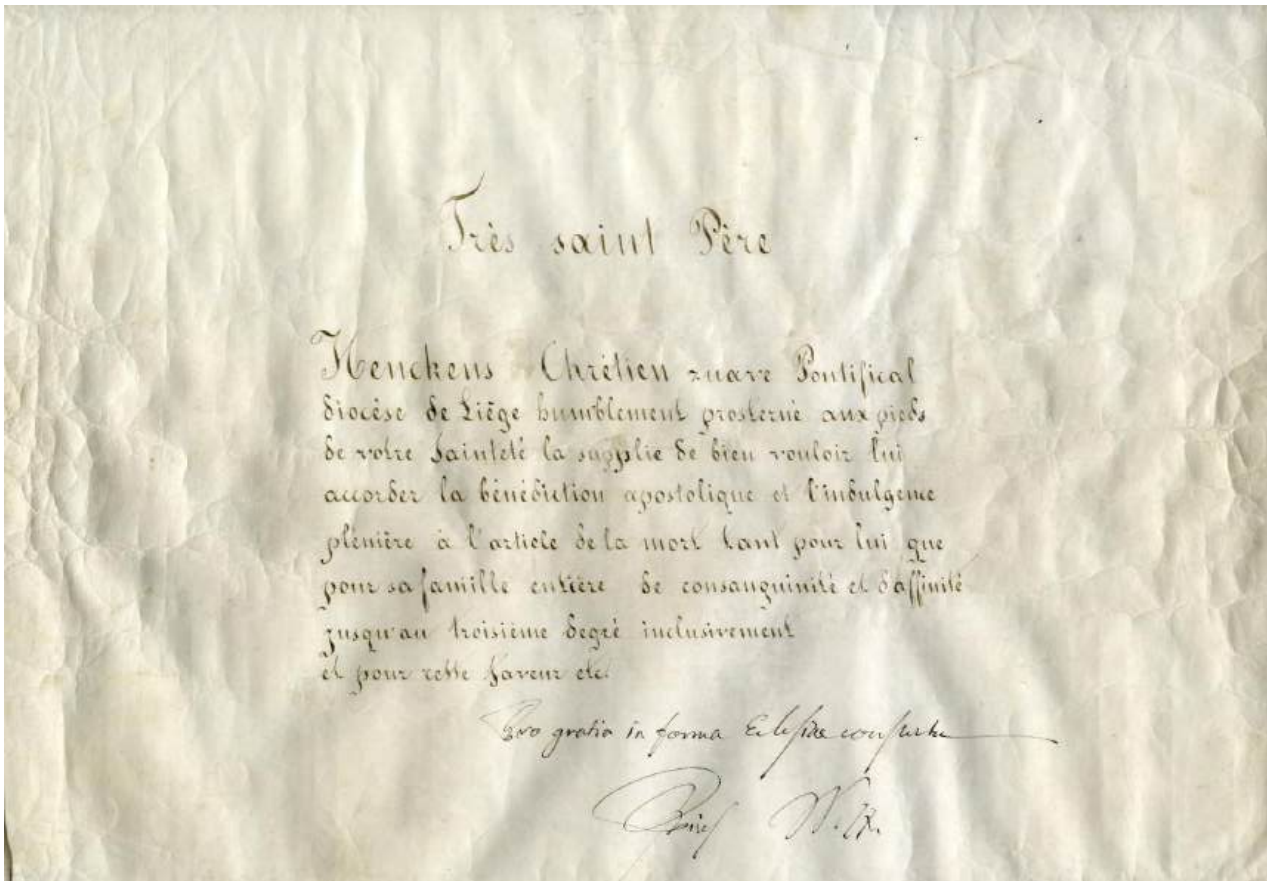 Très saint Père
Henckens Chrétien zuave Pontifical
diocèse de Liège humblement prosterné aux pieds
de votre Sainteté la supplie de bien vouloir lui
accorder la bénédiction apostolique et l'indulgence
plénière à l'article de la mort tant pour lui que
pour sa famille entière de consanguinité et d'affinité
jusqu'au troisième degré inclusivement
et pour cette faveur etc.
Pro gratia in forma Eclesiae consueta